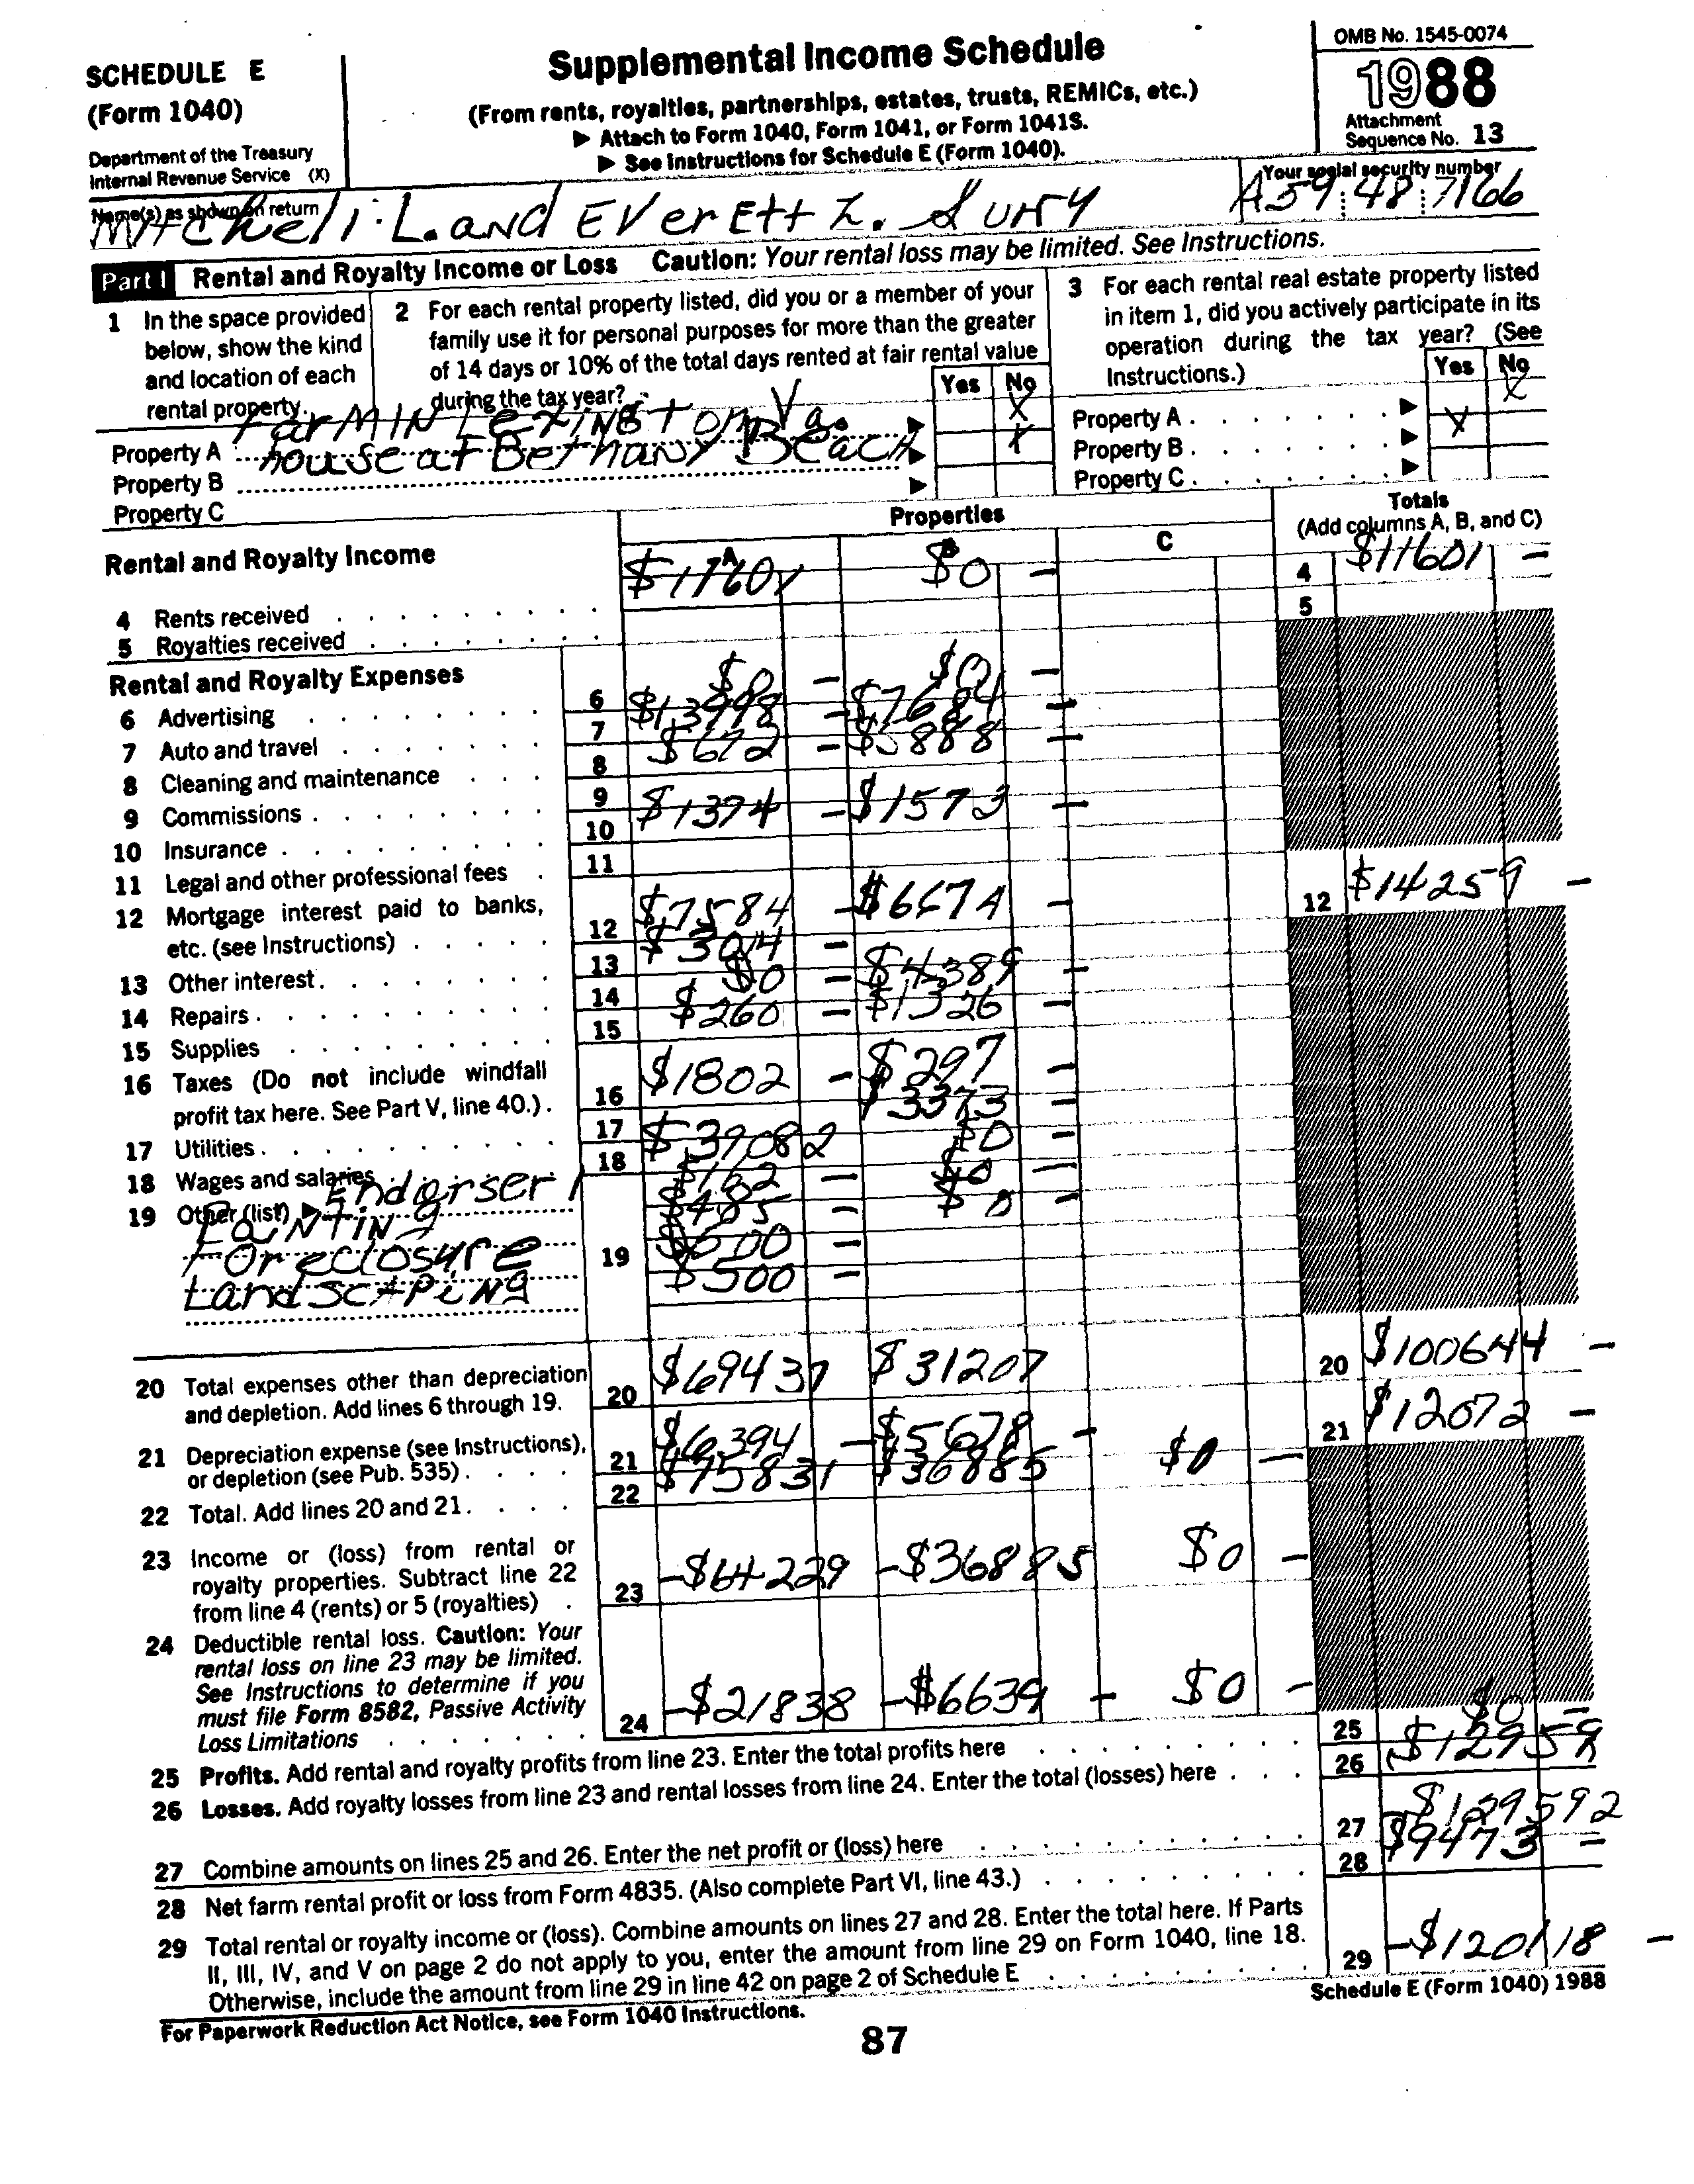 SCHEDULE E
(Form 1040)
Department of the Treasury
Internal Revenue Service (X)
Supplemental Income Schedule
(From rents, royalties, partnerships, estates, trusts, REMICs, etc.)
▶ Attach to Form 1040, Form 1041, or Form 1041S.
▶ See Instructions for Schedule E (Form 1040).
OMB No. 1545-0074
1988
Attachment
Sequence No. 13
Name(s) as shown on return
Mitchell L. and Everett L.
Your social security number
A59 48 7166
Part I Rental and Royalty Income or Loss Caution: Your rental loss may be limited. See Instructions.
1 In the space provided below, show the kind and location of each rental property.
2 For each rental property listed, did you or a member of your family use it for personal purposes for more than the greater of 14 days or 10% of the total days rented at fair rental value during the tax year?
Yes No
3 For each rental real estate property listed in item 1, did you actively participate in its operation during the tax year? (See Instructions.)
Yes No
Property A Farm IN Lexington Va. X
Property B house at Bethany Beach X
Property C
Property A X
Property B X
Property C
Rental and Royalty Income
Properties
A B C
Totals
(Add columns A, B, and C)
4 Rents received $11601 $0 – 4 $11601 –
5 Royalties received 5
Rental and Royalty Expenses
6 Advertising 6 $0 – $0 –
7 Auto and travel 7 $13998 – $7684 –
8 Cleaning and maintenance 8 $672 – $5888 –
9 Commissions 9
10 Insurance 10 $1374 – $1573 –
11 Legal and other professional fees 11
12 Mortgage interest paid to banks, etc. (see Instructions) 12 $7584 – $667A – 12 $14259 –
13 Other interest 13 $3014 –
14 Repairs 14 $0 – $4389 –
15 Supplies 15 $260 – $1326 –
16 Taxes (Do not include windfall profit tax here. See Part V, line 40.) 16 $1802 – $297 –
17 Utilities 17 $3373 –
18 Wages and salaries 18 $39082 $0 –
19 Other (list) ▶ Endorser 1 $162 – $0 –
Painting $485 – $0 –
Foreclosure 19 $500 –
Landscaping $500 –
20 Total expenses other than depreciation and depletion. Add lines 6 through 19. 20 $69437 $31207 20 $100644 –
21 Depreciation expense (see Instructions), or depletion (see Pub. 535) 21 $6394 – $5678 – 21 $12072 –
22 Total. Add lines 20 and 21 22 $75831 $36885 $0 –
23 Income or (loss) from rental or royalty properties. Subtract line 22 from line 4 (rents) or 5 (royalties) 23 -$64229 -$36885 $0 –
24 Deductible rental loss. Caution: Your rental loss on line 23 may be limited. See Instructions to determine if you must file Form 8582, Passive Activity Loss Limitations 24 -$21838 -$6639 – $0 –
25 Profits. Add rental and royalty profits from line 23. Enter the total profits here 25 $0 –
26 Losses. Add royalty losses from line 23 and rental losses from line 24. Enter the total (losses) here 26
27 Combine amounts on lines 25 and 26. Enter the net profit or (loss) here 27 $129592
28 Net farm rental profit or loss from Form 4835. (Also complete Part VI, line 43.) 28 $9473 –
29 Total rental or royalty income or (loss). Combine amounts on lines 27 and 28. Enter the total here. If Parts II, III, IV, and V on page 2 do not apply to you, enter the amount from line 29 on Form 1040, line 18. Otherwise, include the amount from line 29 in line 42 on page 2 of Schedule E 29 -$120118 –
For Paperwork Reduction Act Notice, see Form 1040 Instructions.
Schedule E (Form 1040) 1988
87